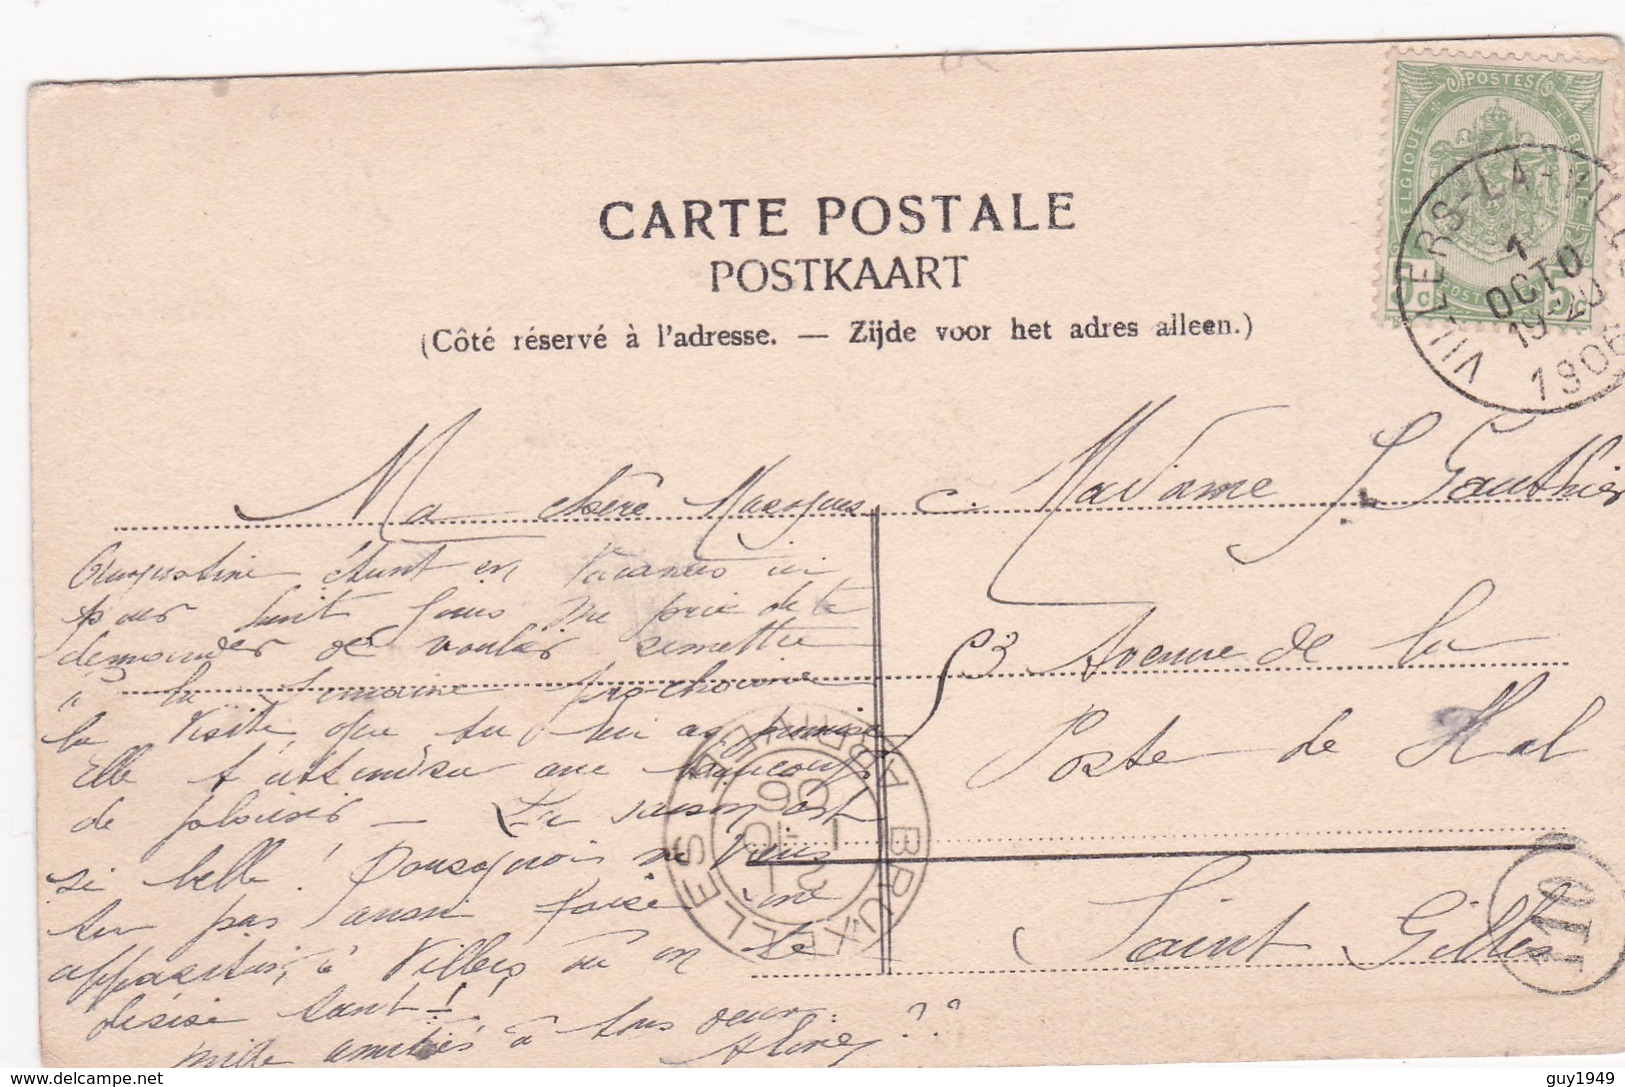 POSTES
BELGIQUE
BELGIË
5 c POSTERIJEN 5 c
VILLERS-LA-VILLE
1
OCTO
19-20
1906
CARTE POSTALE
POSTKAART
(Côté réservé à l'adresse. — Zijde voor het adres alleen.)
Ma chère
Augustine étant en vacances ici
pour huit jours me prie de te
demander de vouloir remettre
à la semaine prochaine
la visite que tu lui as promise
Elle t'attendra avec beaucoup
de plaisir — La saison est
si belle! Pourquoi ne viens
tu pas aussi faire une
apparition à Villers où on te
désire tant!
mille amitiés à tous deux
??
Madame J. Gauthier
53 Avenue de la
Porte de Hal
Saint Gilles
BRUXELLES
1 OCT